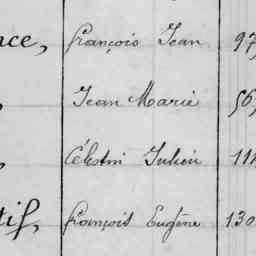 nce, françois Jean 97
, Jean Marie 56
, Célestin Julien 111
tif, françois Eugène 130